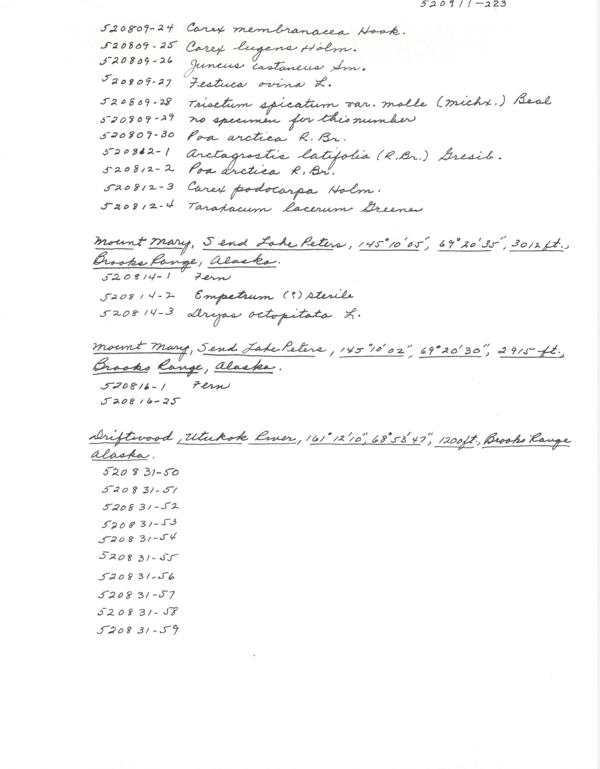 520911-223
520809-24 Carex membranacea Hook.
520809-25 Carex lugens Holm.
520809-26 Juncus castaneus Sm.
520809-27 Festuca ovina L.
520809-28 Trisetum spicatum var. molle (Michx.) Beal
520809-29 no specimen for this number
520809-30 Poa arctica R. Br.
520812-1 Arctagrostis latifolia (R. Br.) Griseb.
520812-2 Poa arctica R. Br.
520812-3 Carex podocarpa Holm.
520812-4 Taraxacum lacerum Greene
Mount Mary, S end Lake Peters, 145°10'05", 69°20'35", 3012 ft.,
Brooks Range, Alaska.
520814-1 Fern
520814-2 Empetrum (?) sterile
520814-3 Dryas octopitata L.
Mount Mary, S end Lake Peters, 145°10'02", 69°20'30", 2915 ft.,
Brooks Range, Alaska.
520816-1 Fern
520816-25
Driftwood, Utukok River, 161°12'10", 68°53'47", 1200 ft., Brooks Range
Alaska.
520831-50
520831-51
520831-52
520831-53
520831-54
520831-55
520831-56
520831-57
520831-58
520831-59